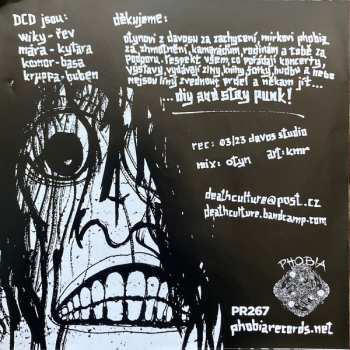 DCD jsou:
wiky - řev
mára - kytara
komor - basa
krippa - buben
děkujeme:
otynovi z davosu za zachycení, mirkovi phobia
za zhmotnění, kamarádům, rodinám a tobě za
podporu. respekt všem, co pořádají koncerty,
výstavy, vydávají ziny, knihy, fotky, hudbu a nebo
nejsou líný zvednout prdel a někam jít...
...diy and stay punk!
rec: 03/23 davos studio
mix: otyn art: kmr
deathculture@post.cz
deathculture.bandcamp.com
PHOBIA
PR267
phobiarecords.net